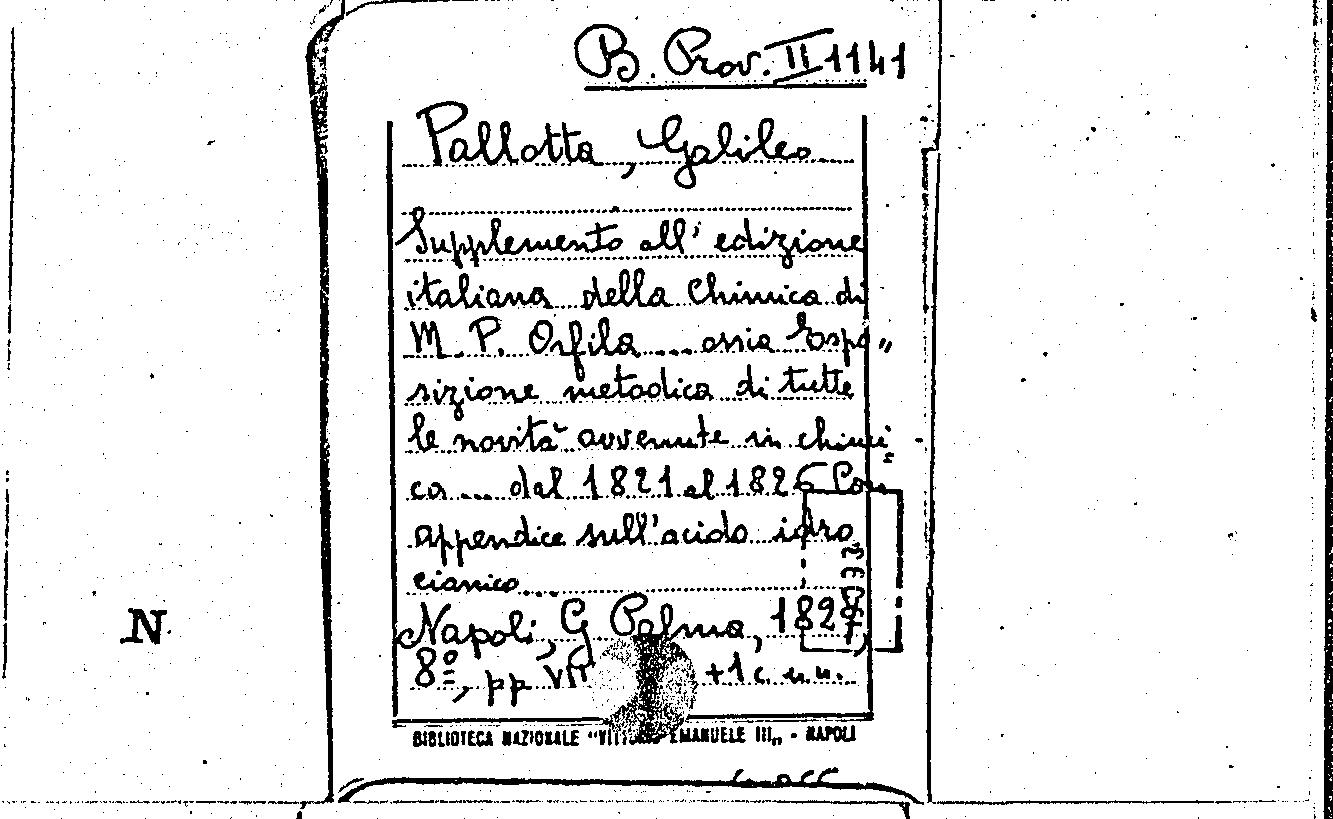 B. Prov. II 1141
Pallotta, Galileo
Supplemento all' edizione
italiana della Chimica di
M. P. Orfila .... ossia Espo„
sizione metodica di tutte
le novità avvenute in chimi
ca .... dal 1821 al 1826 Con
appendice sull'acido idro
cianico....
Napoli, G Palma, 1827
8º, pp VII +1 c. n. n.
BIBLIOTECA NAZIONALE "VITTORIO EMANUELE III„ - NAPOLI
N